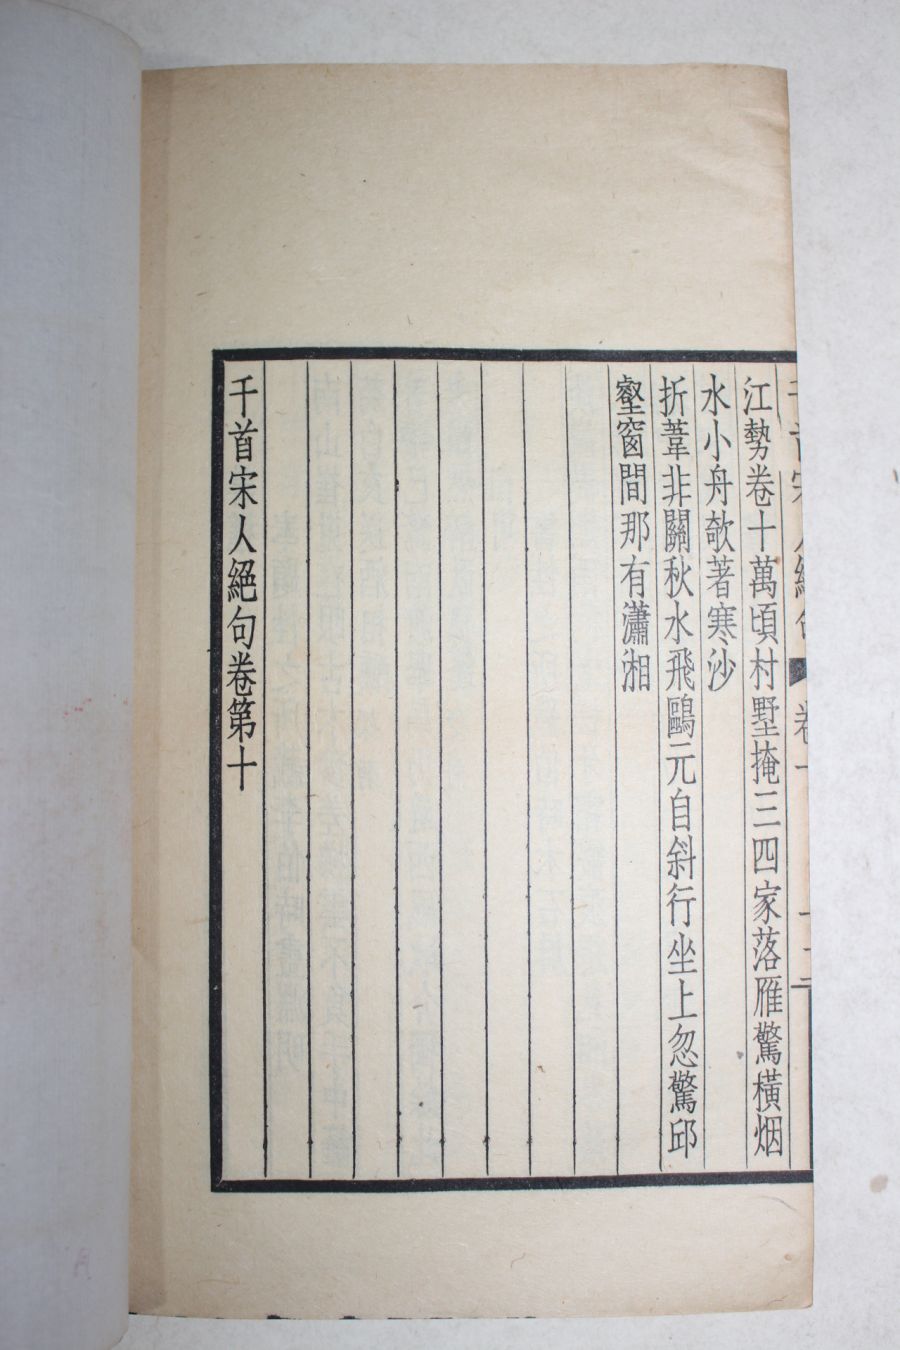 千首宋人絕句 卷十
江勢卷十萬頃村墅掩三四家落雁驚橫烟
水小舟欹著寒沙
折葦非關秋水飛鷗元自斜行坐上忽驚邱
壑窗間那有瀟湘
千首宋人絕句卷第十